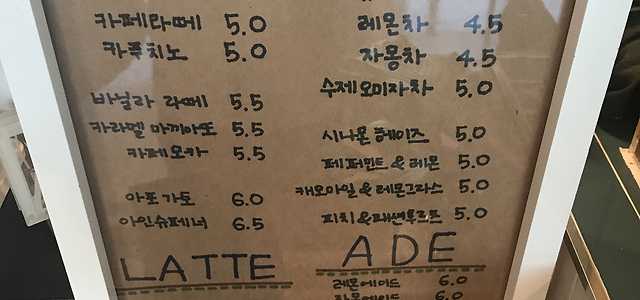 카페라떼 5.0
카푸치노 5.0
바닐라 라떼 5.5
카라멜 마끼아또 5.5
카페모카 5.5
아포가토 6.0
아인슈페너 6.5
LATTE
레몬차 4.5
자몽차 4.5
수제오미자차 5.0
시나몬 헤이즈 5.0
페퍼민트&레몬 5.0
캐모마일&레몬그라스 5.0
피치&패션후르츠 5.0
ADE
레몬에이드 6.0
자몽에이드 6.0